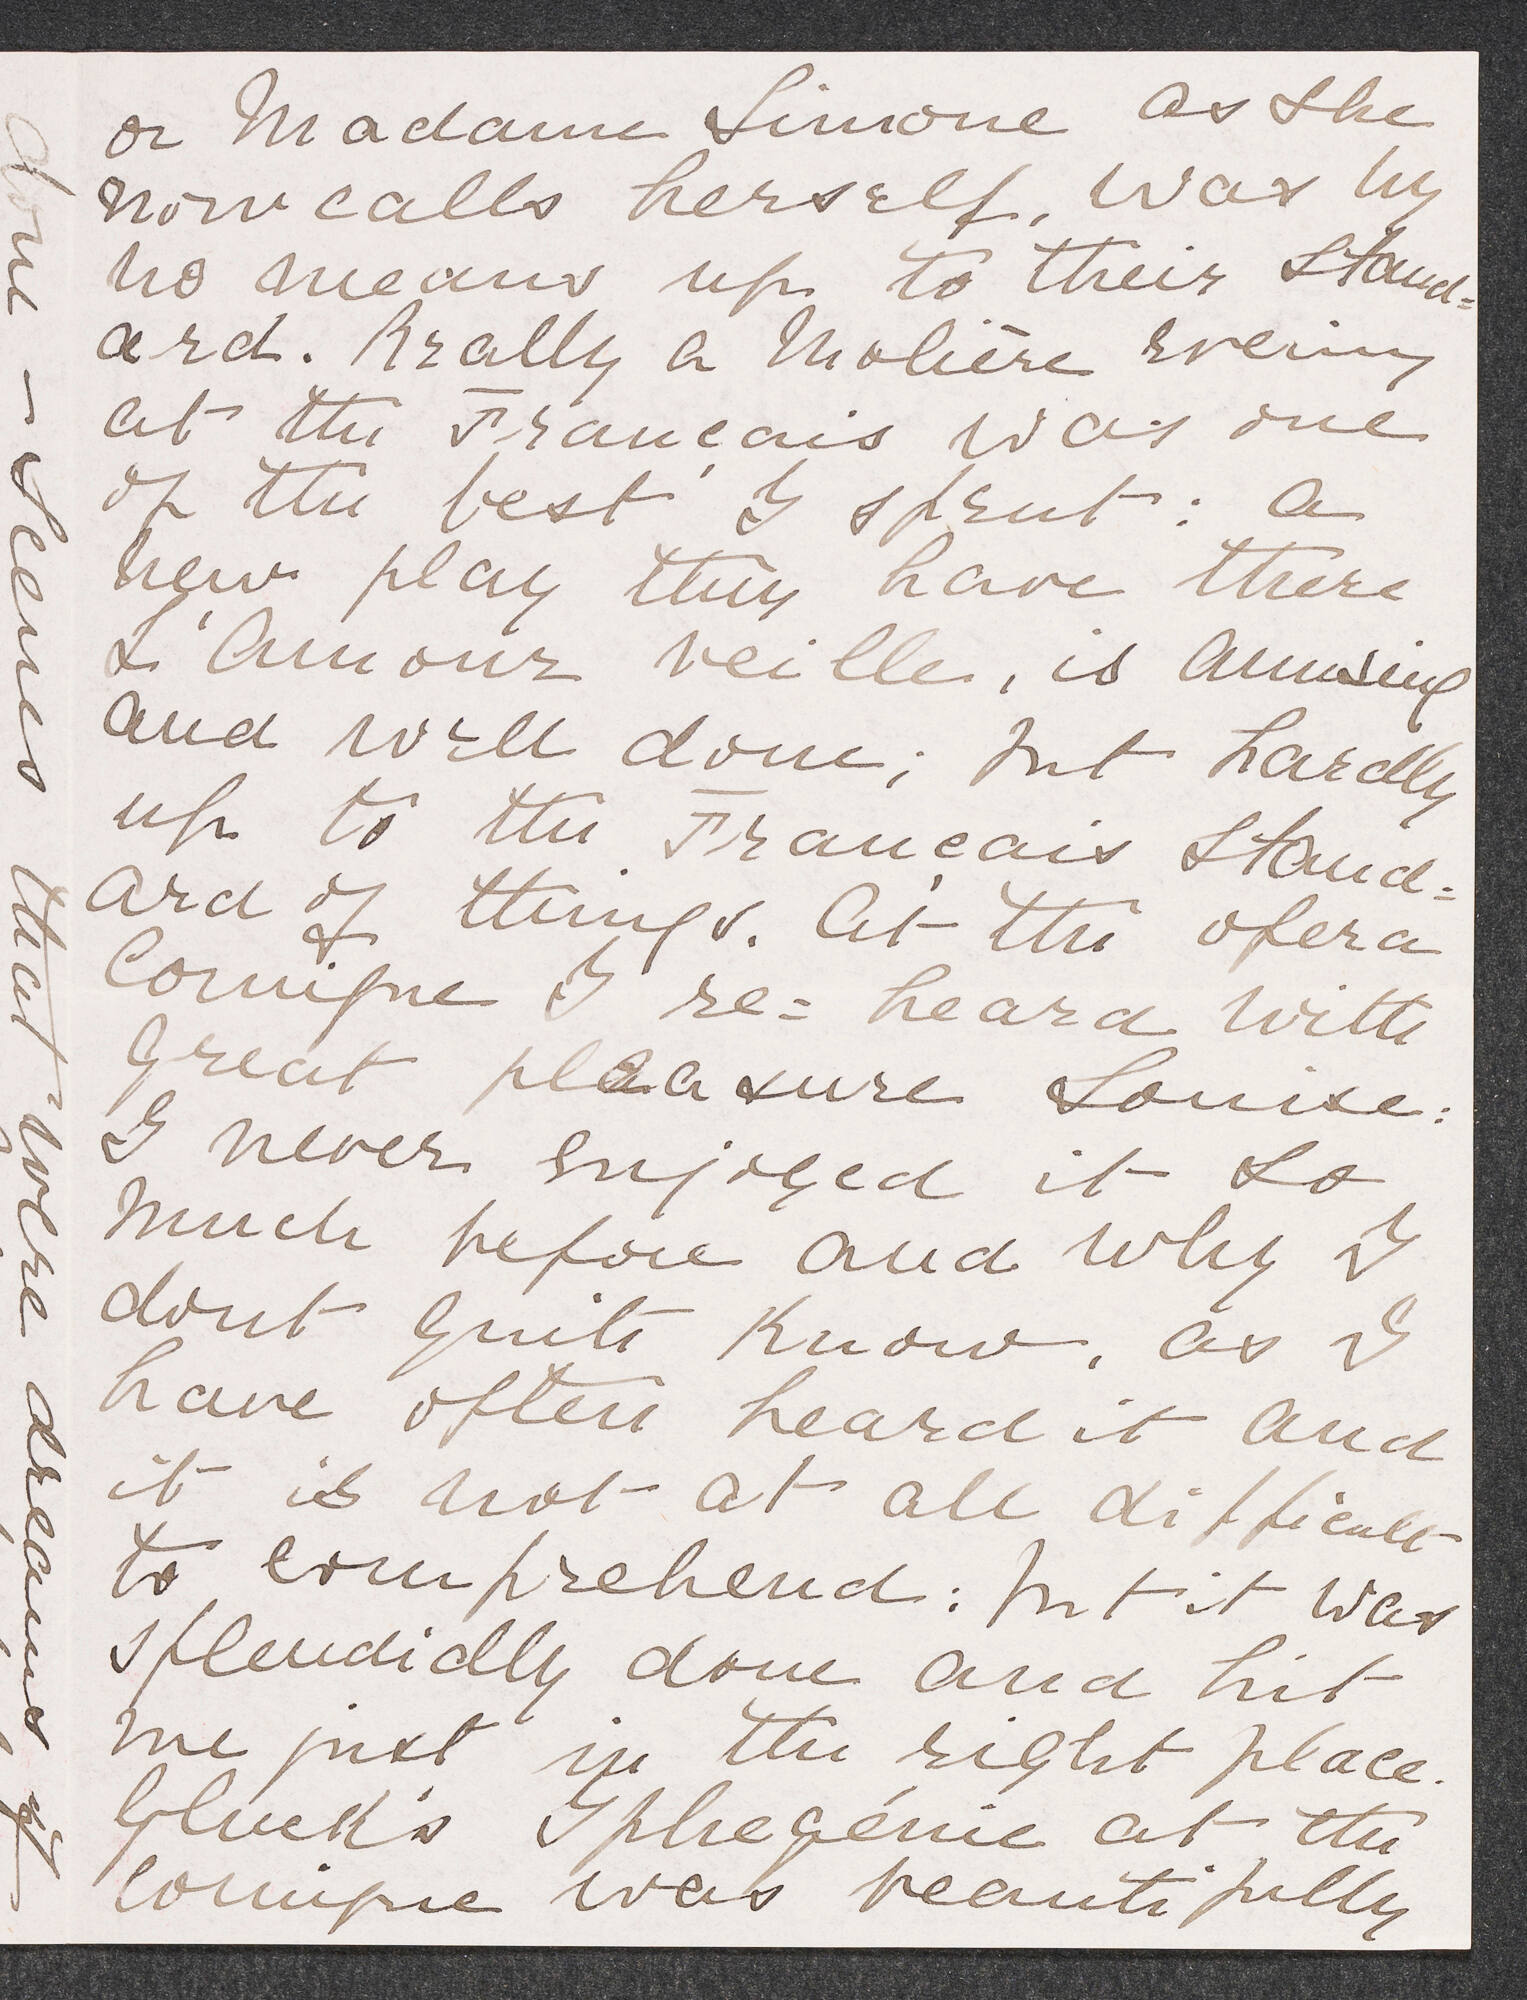 or Madame Simone as she
now calls herself, was by
no means up to their stand=
ard. Really a Molière evening
at the Français was one
of the best I spent: a
new play they have there
L'Amour veille, is amusing
and well done; but hardly
up to the Français stand=
ard of things. At the opera
Comique I re=heard with
great pleasure Louise:
I never enjoyed it so
much before and why I
dont quite know, as I
have often heard it and
it is not at all difficult
to comprehend: but it was
splendidly done and hit
me just in the right place.
Gluck's Iphegénie at the
comique was beautifully
done - scenes that were dreams of